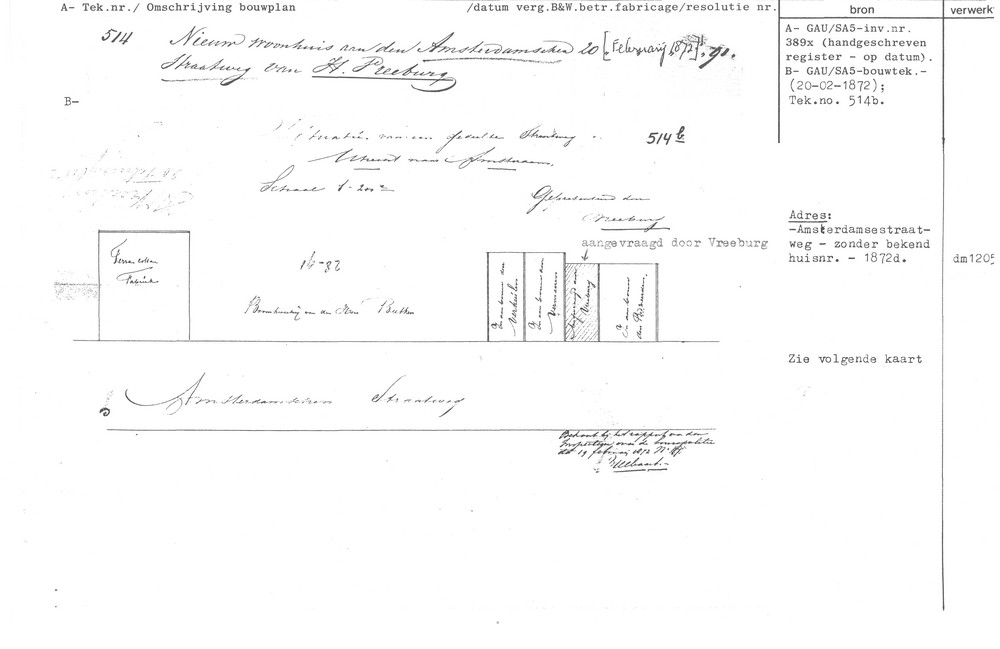 A- Tek.nr./ Omschrijving bouwplan /datum verg.B&W.betr.fabricage/resolutie nr. bron verwerk
514 Nieuw woonhuis aan den Amsterdamschen 20 [Februarij 1872]
Straatweg van H. Vreeburg
A- GAU/SA5-inv.nr.
389x (handgeschreven
register - op datum).
B- GAU/SA5-bouwtek.-
(20-02-1872);
Tek.no. 514b.
B-
Situatie van een gedeelte Straatweg
514 b
Utrecht naar Amsterdam
Schaal 1-200
Gepresenteerd door
Vreeburg
Adres:
-Amsterdamsestraat-
weg - zonder bekend
huisnr. - 1872d.
dm1205
aangevraagd door Vreeburg
Terra cotta
Fabriek
In aanbouw den
Verkuilen
In aanbouw den
Vreeburg
In aanbouw
Zie volgende kaart
Amsterdamschen Straatweg
Behoort bij het rapport van den
Inspecteur over de bouwpolitie
dd 19 februarij 1872 N°